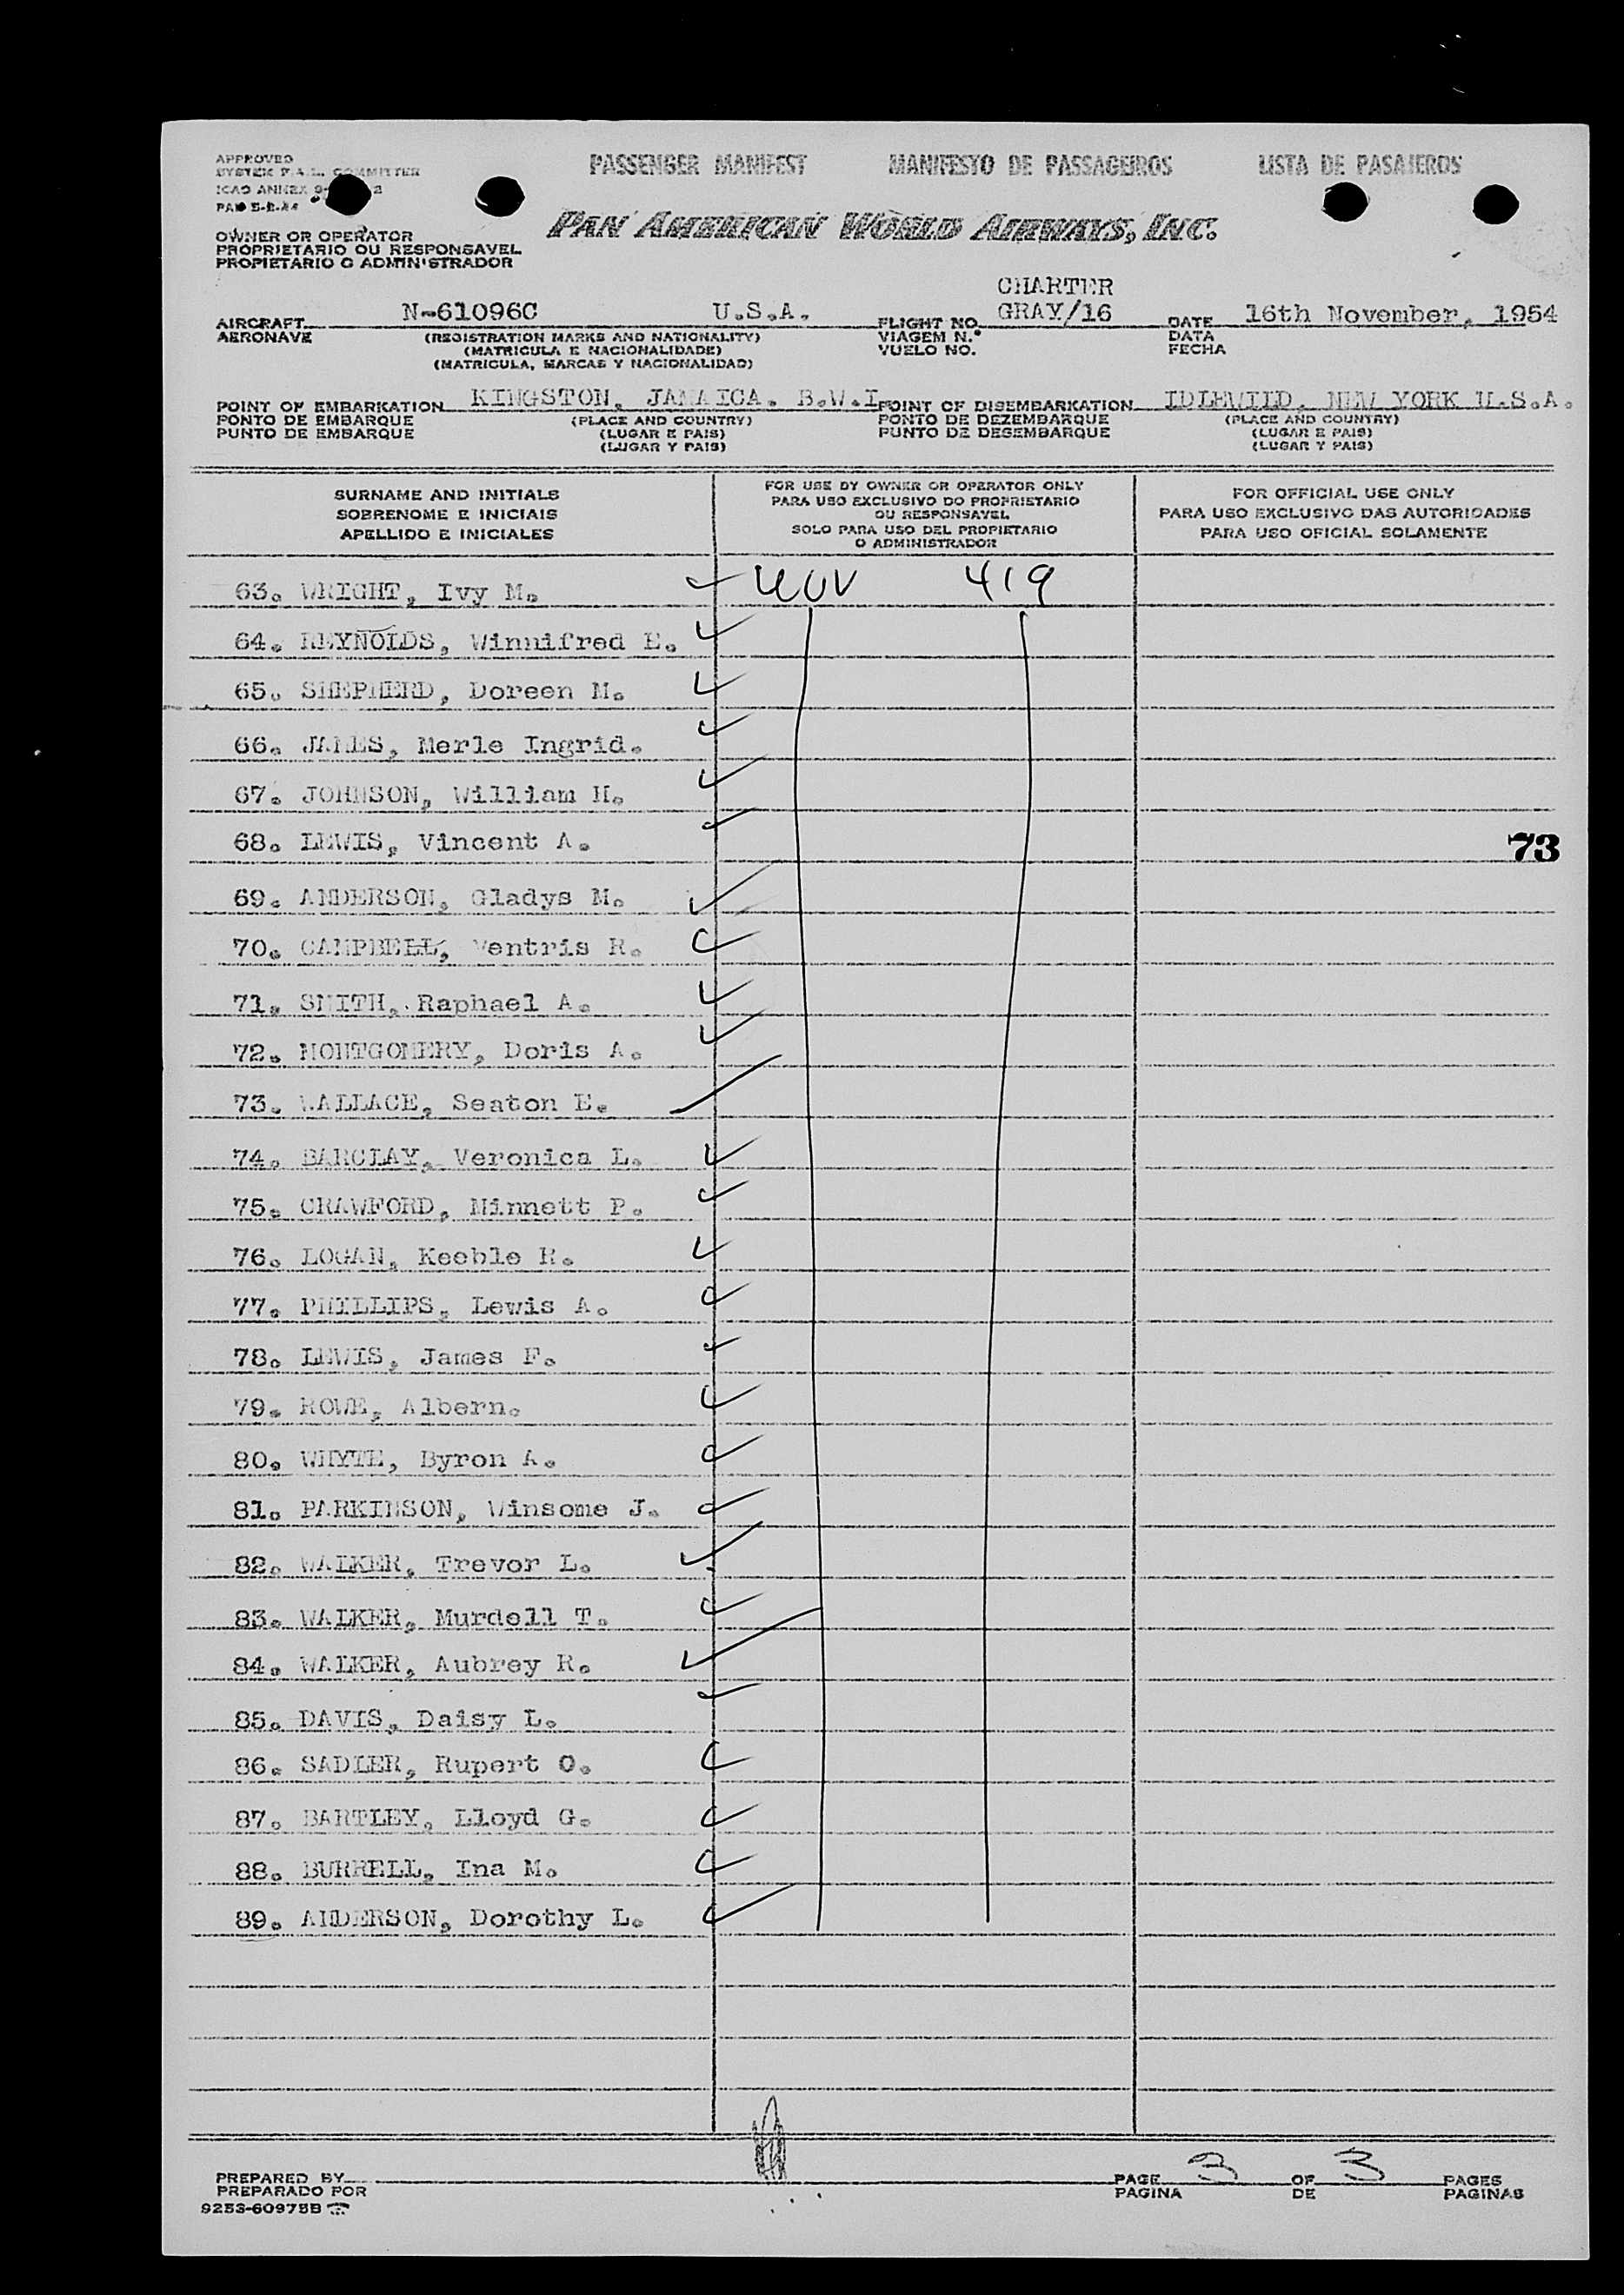 APPROVED
SYSTEM F.A.L. COMMITTER
ICAO ANNEX 9-
PAN
PASSENGER MANIFEST MANIFESTO DE PASSAGEIROS LISTA DE PASAJEROS
PAN AMERICAN WORLD AIRWAYS, INC.
OWNER OR OPERATOR
PROPRIETARIO OU RESPONSAVEL
PROPIETARIO O ADMINISTRADOR
CHARTER
AIRCRAFT N-61096C U.S.A. FLIGHT NO. GRAY/16 DATE 16th November, 1954
AERONAVE (REGISTRATION MARKS AND NATIONALITY) VIAGEM N.º DATA
(MATRICULA E NACIONALIDADE) VUELO NO. FECHA
(MATRICULA, MARCAS Y NACIONALIDAD)
POINT OF EMBARKATION KINGSTON, JAMAICA. B.W.I. POINT OF DISEMBARKATION IDLEWILD, NEW YORK U.S.A.
PONTO DE EMBARQUE (PLACE AND COUNTRY) PONTO DE DEZEMBARQUE (PLACE AND COUNTRY)
PUNTO DE EMBARQUE (LUGAR E PAIS) PUNTO DE DESEMBARQUE (LUGAR E PAIS)
(LUGAR Y PAIS) (LUGAR Y PAIS)
SURNAME AND INITIALS
SOBRENOME E INICIAIS
APELLIDO E INICIALES
FOR USE BY OWNER OR OPERATOR ONLY
PARA USO EXCLUSIVO DO PROPRIETARIO
OU RESPONSAVEL
SOLO PARA USO DEL PROPIETARIO
O ADMINISTRADOR
FOR OFFICIAL USE ONLY
PARA USO EXCLUSIVO DAS AUTORIDADES
PARA USO OFICIAL SOLAMENTE
63. WRIGHT, Ivy M. 419
64. REYNOLDS, Winnifred E.
65. SHEPHERD, Doreen M.
66. JAMES, Merle Ingrid.
67. JOHNSON, William H.
68. LEWIS, Vincent A. 73
69. ANDERSON, Gladys M.
70. CAMPBELL, Ventris R.
71. SMITH, Raphael A.
72. MONTGOMERY, Doris A.
73. WALLACE, Seaton E.
74. BARCLAY, Veronica L.
75. CRAWFORD, Minnett P.
76. LOGAN, Keeble R.
77. PHILLIPS, Lewis A.
78. LEWIS, James F.
79. ROWE, Albern.
80. WHYTE, Byron A.
81. PARKINSON, Winsome J.
82. WALKER, Trevor L.
83. WALKER, Murdell T.
84. WALKER, Aubrey R.
85. DAVIS, Daisy L.
86. SADLER, Rupert O.
87. BARTLEY, Lloyd G.
88. BURRELL, Ina M.
89. ANDERSON, Dorothy L.
PREPARED BY PAGE 3 OF 3 PAGES
PREPARADO POR PAGINA DE PAGINAS
9253-60975B